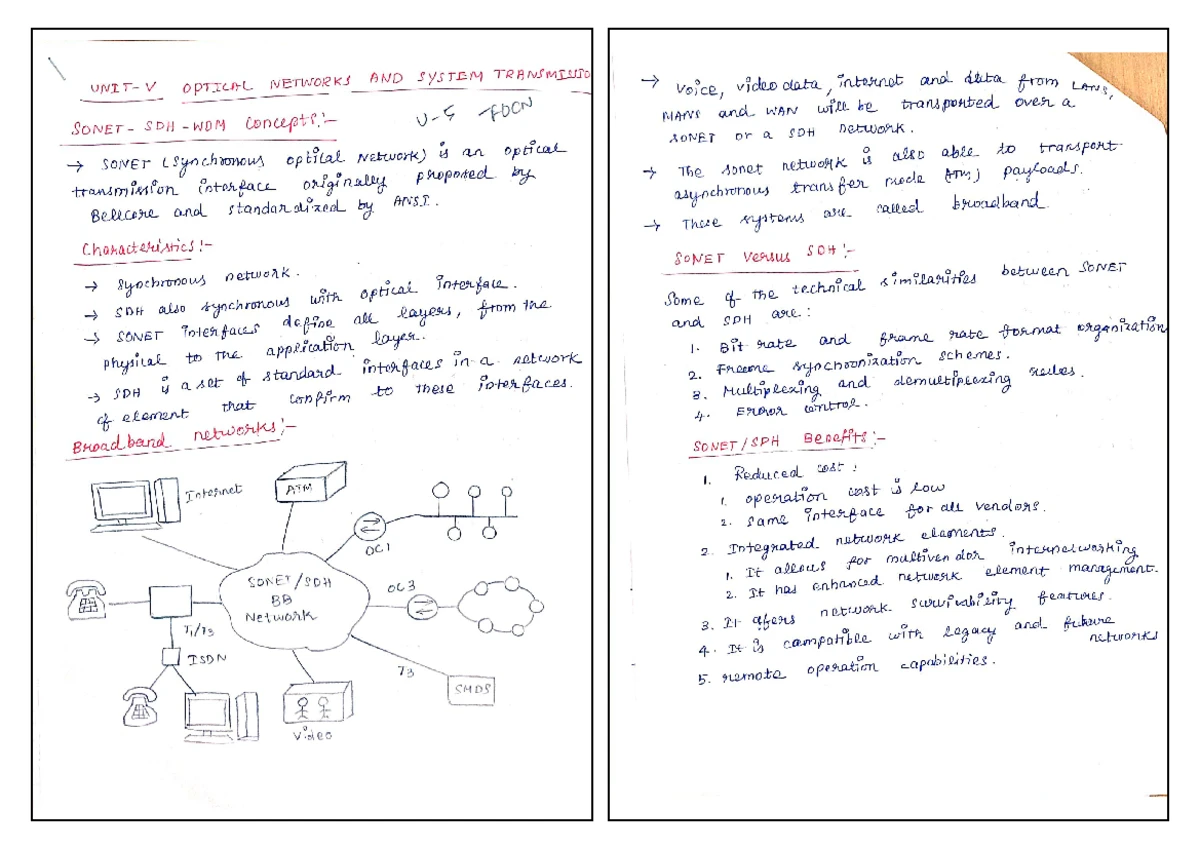 UNIT-V OPTICAL NETWORKS AND SYSTEM TRANSMISSIO
U-5 FOCN
SONET - SDH - WDM Concepts:-
→ SONET (Synchronous optical Network) is an optical
transmission interface originally proposed by
Bellcore and standardized by ANSI.
Characteristics:-
→ Synchronous network.
→ SDH also synchronous with optical interface.
→ SONET interfaces define all layers, from the
physical to the application layer.
→ SDH is a set of standard interfaces in a network
of element that confirm to these interfaces.
Broadband networks:-
Internet
ATM
OC1
SONET/SDH
BB
Network
OC3
T1/T3
ISDN
T3
SMDS
Video
→ Voice, video data, internet and data from LANS,
MANS and WAN will be transported over a
SONET or a SDH network.
→ The sonet network is also able to transport
asynchronous transfer mode (ATM) payloads.
→ These systems are called broadband
SONET Versus SDH:-
Some of the technical similarities between SONET
and SDH are:
1. Bit rate and frame rate format organization
2. Frame synchronization schemes.
3. Multiplexing and demultiplexing rules.
4. Error control.
SONET/SDH Benefits:-
1. Reduced cost:
1. operation cost is low
2. same interface for all vendors.
2. Integrated network elements.
1. It allows for multivendor internetworking
2. It has enhanced network element management.
3. It offers network survivability features.
4. It is campatible with legacy and future
networks
5. remote operation capabilities.